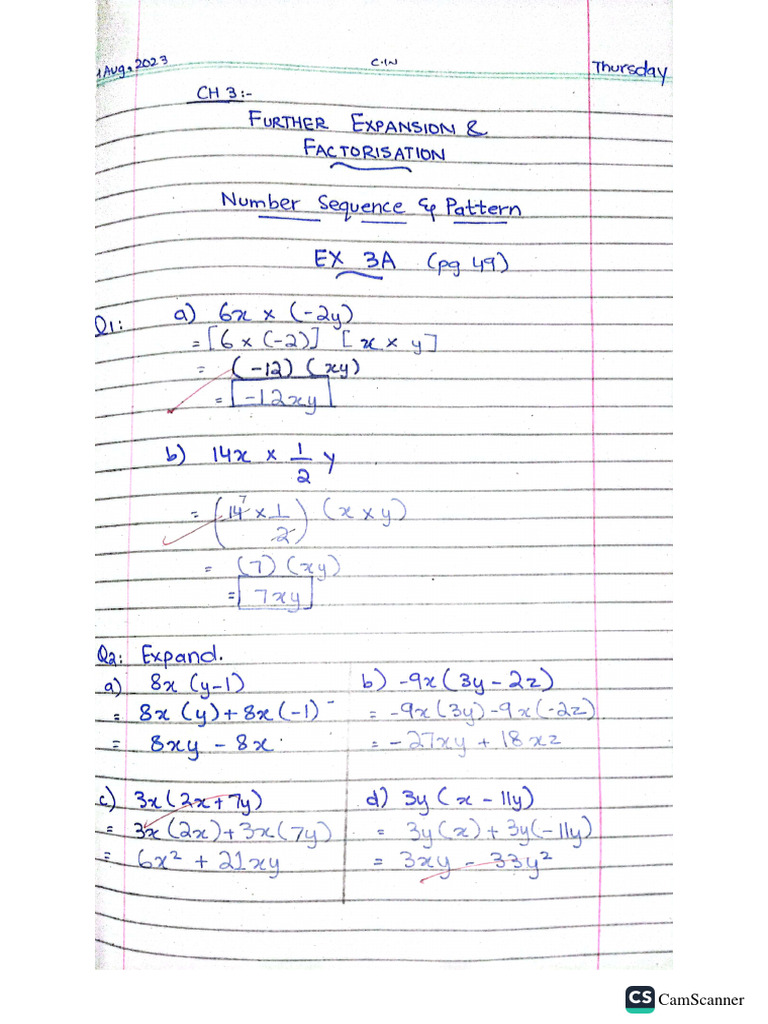 Aug. 2023 C.W Thursday
CH 3:-
FURTHER EXPANSION &
FACTORISATION
Number Sequence & Pattern
EX 3A (pg 49)
Q1: a) 6x × (-2y)
= [6 × (-2)] [x × y]
= (-12) (xy)
= -12xy
b) 14x × 1/2 y
= (14 7 × 1/2) (x × y)
= (7) (xy)
= 7xy
Q2: Expand.
a) 8x (y-1)
= 8x (y) + 8x (-1)
= 8xy - 8x
b) -9x (3y - 2z)
= -9x (3y) -9x (-2z)
= -27xy + 18xz
c) 3x (2x + 7y)
= 3x (2x) + 3x (7y)
= 6x² + 21xy
d) 3y (x - 11y)
= 3y (x) + 3y (-11y)
= 3xy - 33y²
CS CamScanner